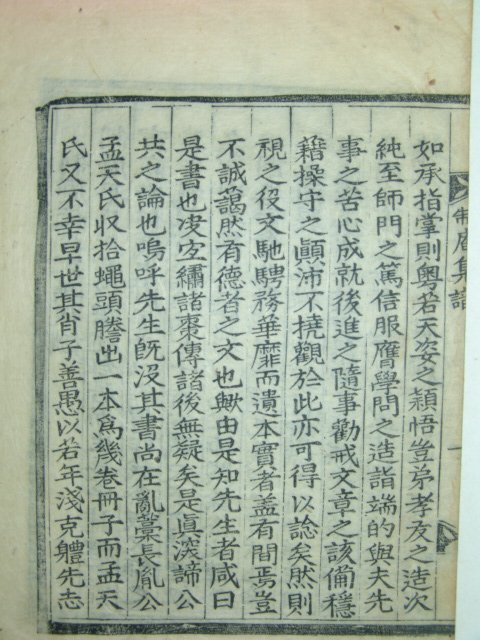 庵集譜
一
如承指掌則粤若天姿之穎悟豈弟孝友之造次
純至師門之篤信服膺學問之造詣端的與夫先
事之苦心成就後進之隨事勸戒文章之該備穩
藉操守之顚沛不撓觀於此亦可得以諗矣然則
視之役文馳騁務華靡而遺本實者盖有間焉豈
不誠藹然有德者之文也歟由是知先生者咸曰
是書也决宜繡諸棗傳諸後無疑矣是眞深諦公
共之論也嗚呼先生旣沒其書尚在亂藁長胤公
孟天氏収拾蠅頭謄出一本爲幾卷冊子而孟天
氏又不幸早世其肖子善愚以若年淺克軆先志